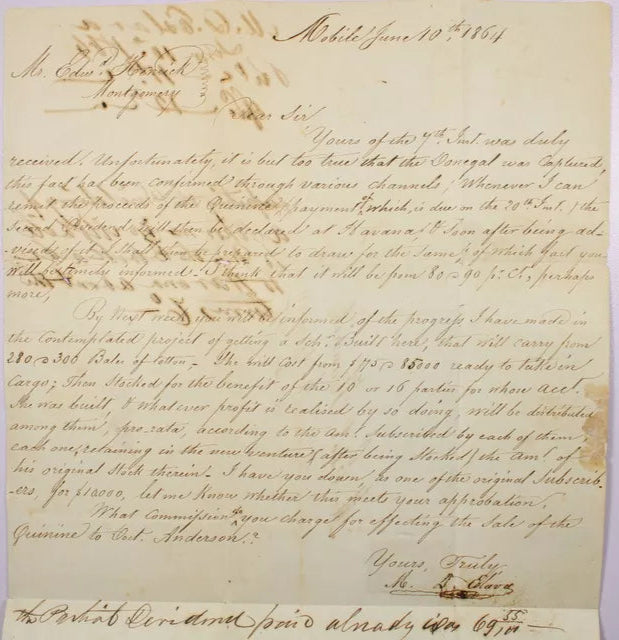 Mobile June 10th. 1864
Mr. Edwd. Hanrick
Montgomery
Dear Sir
Yours of the 7th. Inst. was duly
received. Unfortunately, it is but too true that the Donegal was Captured,
this fact has been confirmed through various channels, Whenever I can
remit the proceeds of the Quinine (payment of which, is due on the 20th Inst.) the
Dividend shall then be declared at Havana & Soon after being ad-
vised of it I shall then be prepared to draw for the same, of which fact you
will be timely informed. I think that it will be from 80 @ 90 pr. Ct., perhaps
more,
By Next week you will be informed of the progress I have made in
the Contemplated project of getting a Schr. Built here, that will carry from
280 @ 300 Bales of Cotton - She will Cost from $75 @ 85000 ready to take in
Cargo; Then Stocked for the benefit of the 10 or 16 parties for whose acct.
She was built, & whatever profit is realised by so doing, will be distributed
among them, pro-rata, according to the Amt. Subscribed by each of them,
each one, retaining in the new venture (after being Stocked) the Amt. of
his original Stock therein - I have you down, as one of the original Subscrib-
ers, for $10000, let me Know whether this meets your approbation.
What Commission do you charge for effecting the Sale of the
Quinine to Anderson.?
Yours, Truly
M. D. Eslava
the Partial Dividend paid already was 69